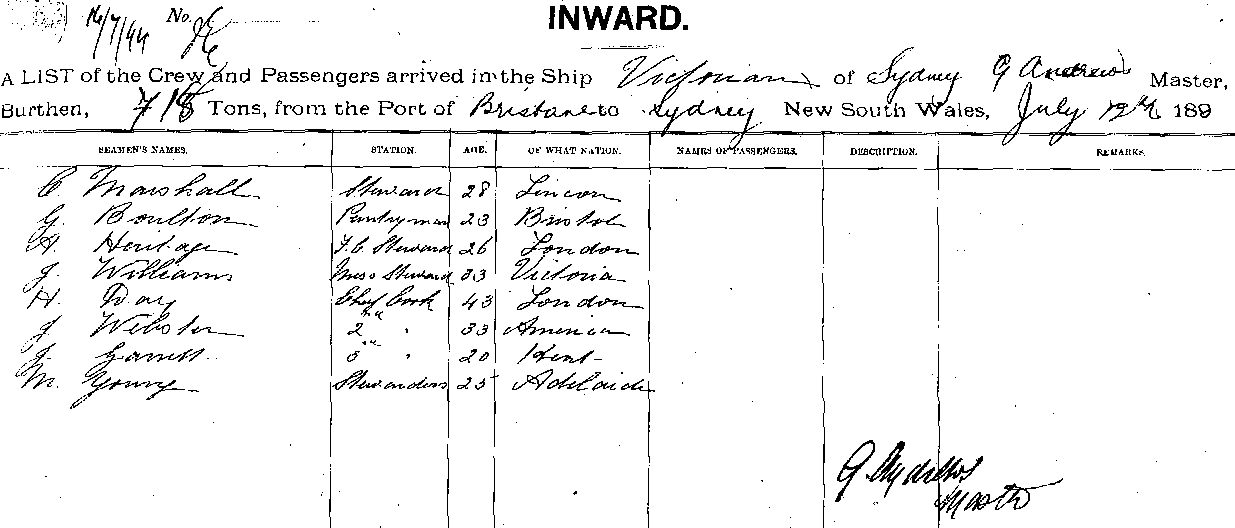 16/7/99 No.
INWARD.
A LIST of the Crew and Passengers arrived in the Ship Victorian of Sydney G Andrews Master,
Burthen, 718 Tons, from the Port of Brisbane to Sydney New South Wales, July 12th 189
SEAMEN'S NAMES. STATION. AGE. OF WHAT NATION. NAMES OF PASSENGERS. DESCRIPTION. REMARKS.
C. Marshall Steward 28 Lincon
G. Boulton Pantryman 23 Bristol
A. Heritage F.C. Steward 26 London
J. Williams Mess Steward 33 Victoria
H. Day Chef Cook 43 London
J. Webster 2 " " 33 America
J. Garrett 3 " " 20 Kent
M. Young Stewardess 25 Adelaide
G. Andrews
Master